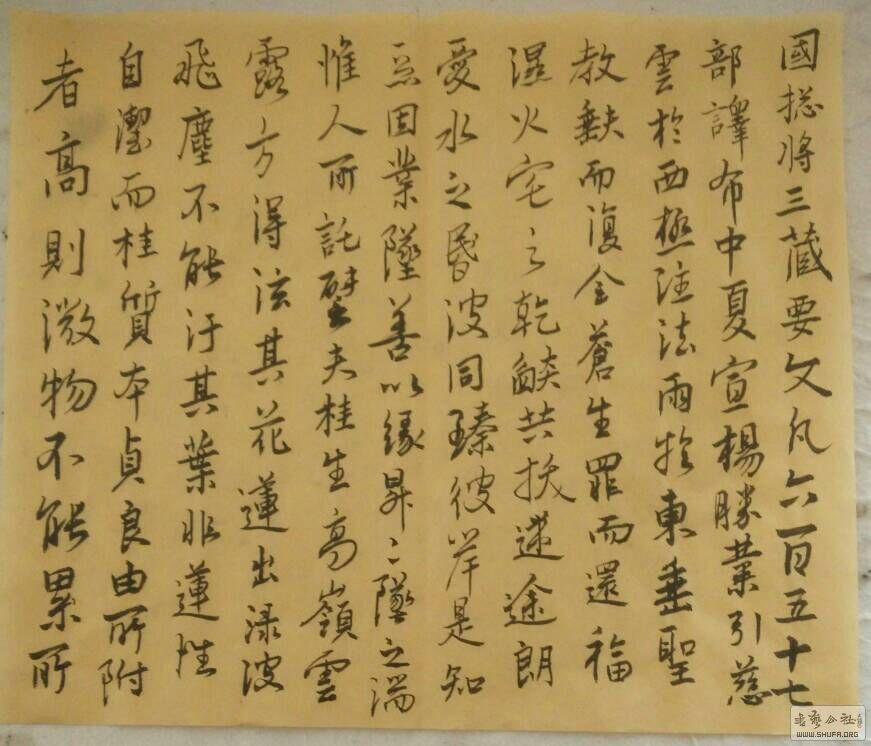 國揔將三藏要文凡六百五十七
部譯布中夏宣楊勝業引慈
雲於西極注法雨於東垂聖
教缺而復全蒼生罪而還福
濕火宅之乾燄共拔迷途朗
愛水之昏波同臻彼岸是知
惡因業墜善以緣昇昇墜之端
惟人所託譬夫桂生高嶺雲
露方得泫其花蓮出淥波
飛塵不能汙其葉非蓮性
自潔而桂質本貞良由所附
者高則微物不能累所
書藝公社
WWW.SHUFA.ORG